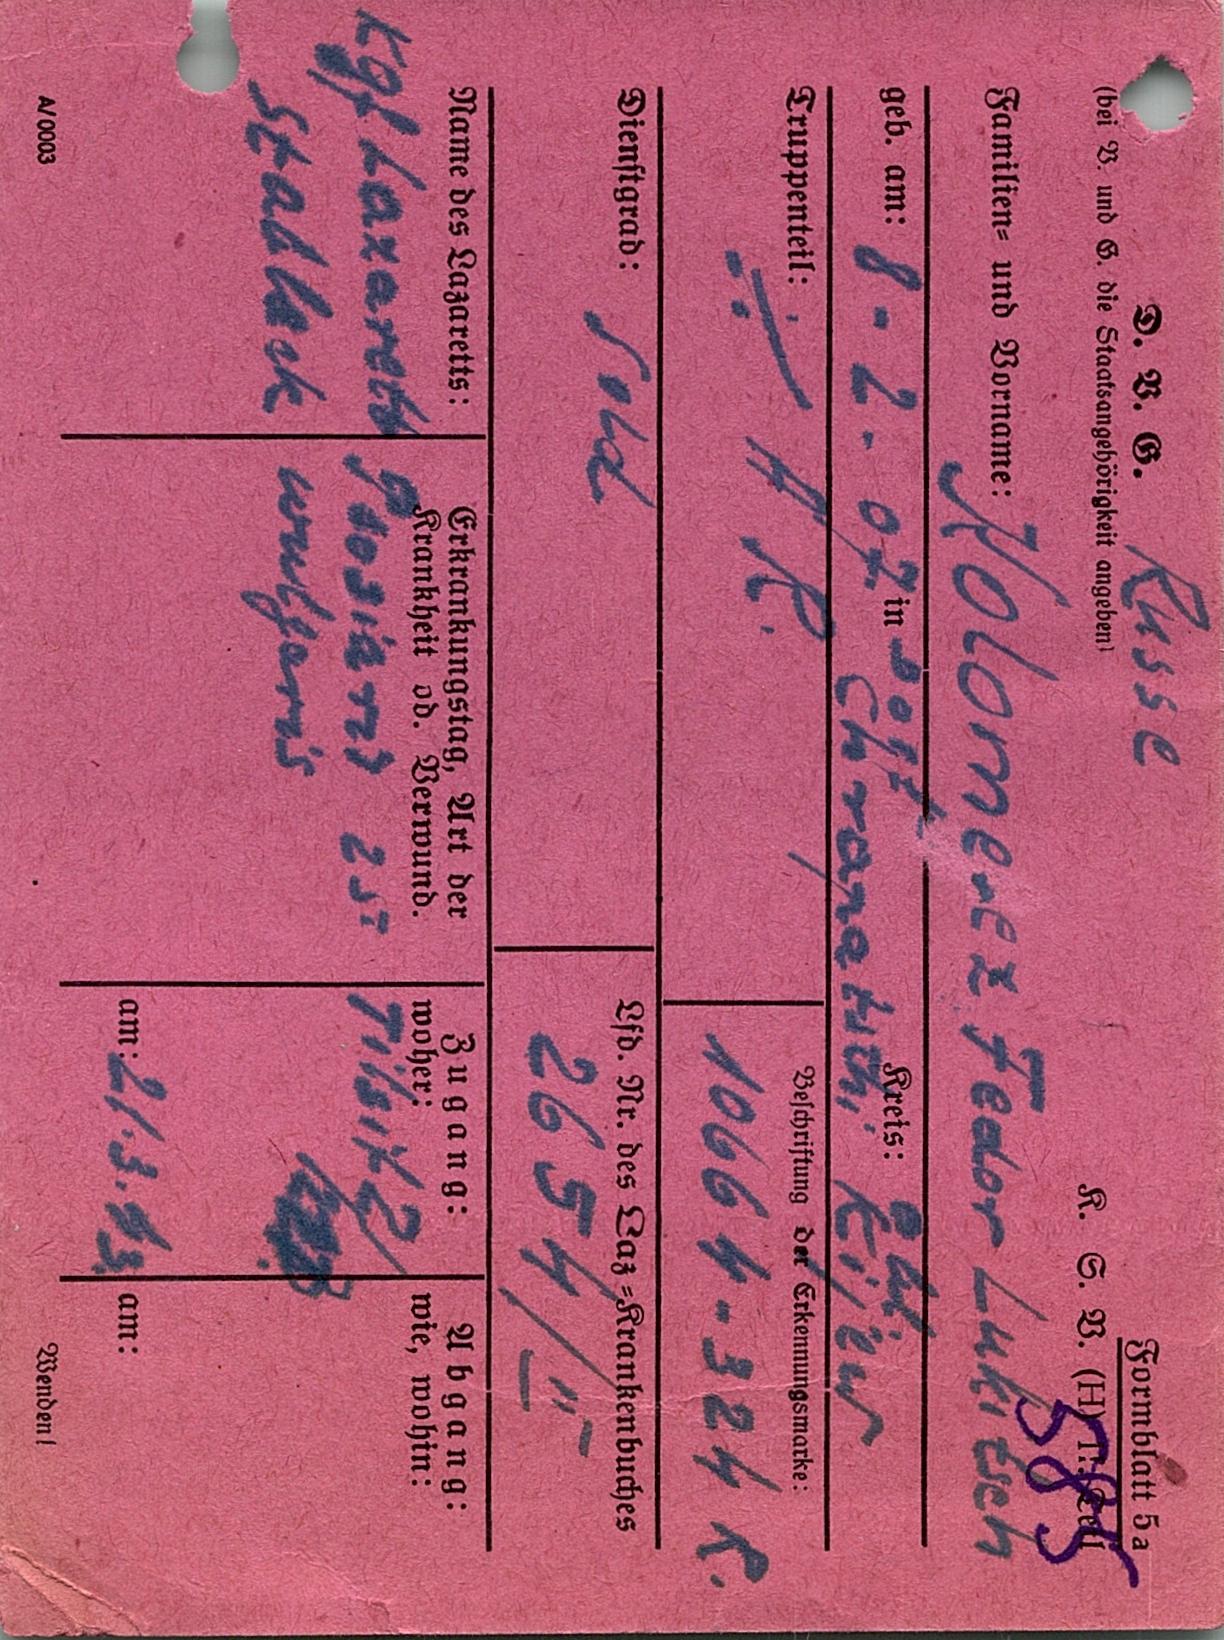 D. V. G. Russe
Formblatt 5a
(bei V. und G. die Staatsangehörigkeit angeben)
K. G. V. (H) I. Teil
585
Familien- und Vorname: Kolomenez Fedor Lukitsch
geb. am: 8-2-07 in Kreis:
Kijew
Truppenteil: A R.
Beschriftung der Erkennungsmarke:
10664-324 R.
Dienstgrad: Sold
Lfd. Nr. des Laz-Krankenbuches
2654/II
Name des Lazaretts:
Kgf Lazarett
Stablack
Erkrankungstag, Art der
Krankheit od. Verwund.
Psoriasis
vulgaris
Zugang:
woher:
Tilsit
am: 21.3.43
Abgang:
wie, wohin:
am:
A/0003
Wenden!